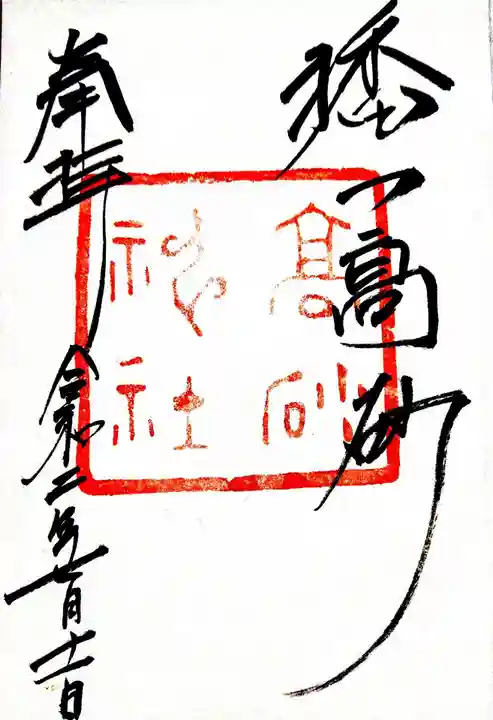 高砂
高砂
神社
奉拝
令和二年一月十一日